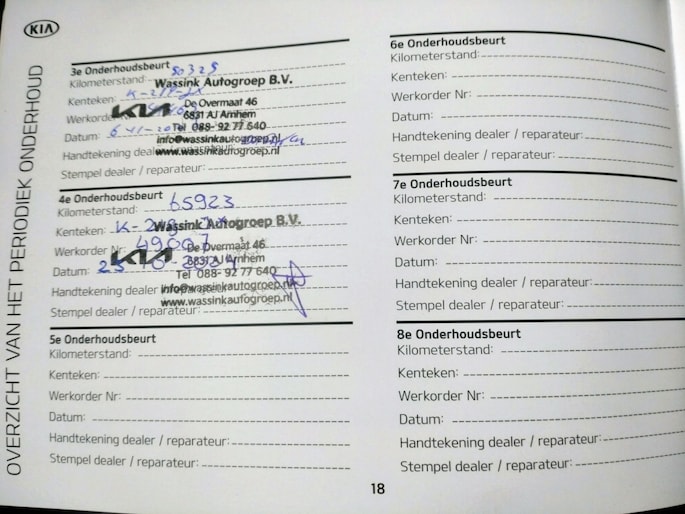 KIA
OVERZICHT VAN HET PERIODIEK ONDERHOUD
3e Onderhoudsbeurt
Kilometerstand: 50325
Wassink Autogroep B.V.
Kenteken:
De Overmaat 46
Werkorder
KIA
6831 AJ Arnhem
Datum:
Tel 088- 92 77 640
info@wassinkautogroep.nl
Handtekening dealer / reparateur:
www.wassinkautogroep.nl
Stempel dealer / reparateur:
4e Onderhoudsbeurt
Kilometerstand: 65923
Kenteken: K-
Wassink Autogroep B.V.
Werkorder Nr: 49007
De Overmaat 46
KIA
6831 AJ Arnhem
Datum: 25
Tel 088- 92 77 640
Handtekening dealer / reparateur
info@wassinkautogroep.nl
www.wassinkautogroep.nl
Stempel dealer / reparateur:
5e Onderhoudsbeurt
Kilometerstand:
Kenteken:
Werkorder Nr:
Datum:
Handtekening dealer / reparateur:
Stempel dealer / reparateur:
6e Onderhoudsbeurt
Kilometerstand:
Kenteken:
Werkorder Nr:
Datum:
Handtekening dealer / reparateur:
Stempel dealer / reparateur:
7e Onderhoudsbeurt
Kilometerstand:
Kenteken:
Werkorder Nr:
Datum:
Handtekening dealer / reparateur:
Stempel dealer / reparateur:
8e Onderhoudsbeurt
Kilometerstand:
Kenteken:
Werkorder Nr:
Datum:
Handtekening dealer / reparateur:
Stempel dealer / reparateur:
18